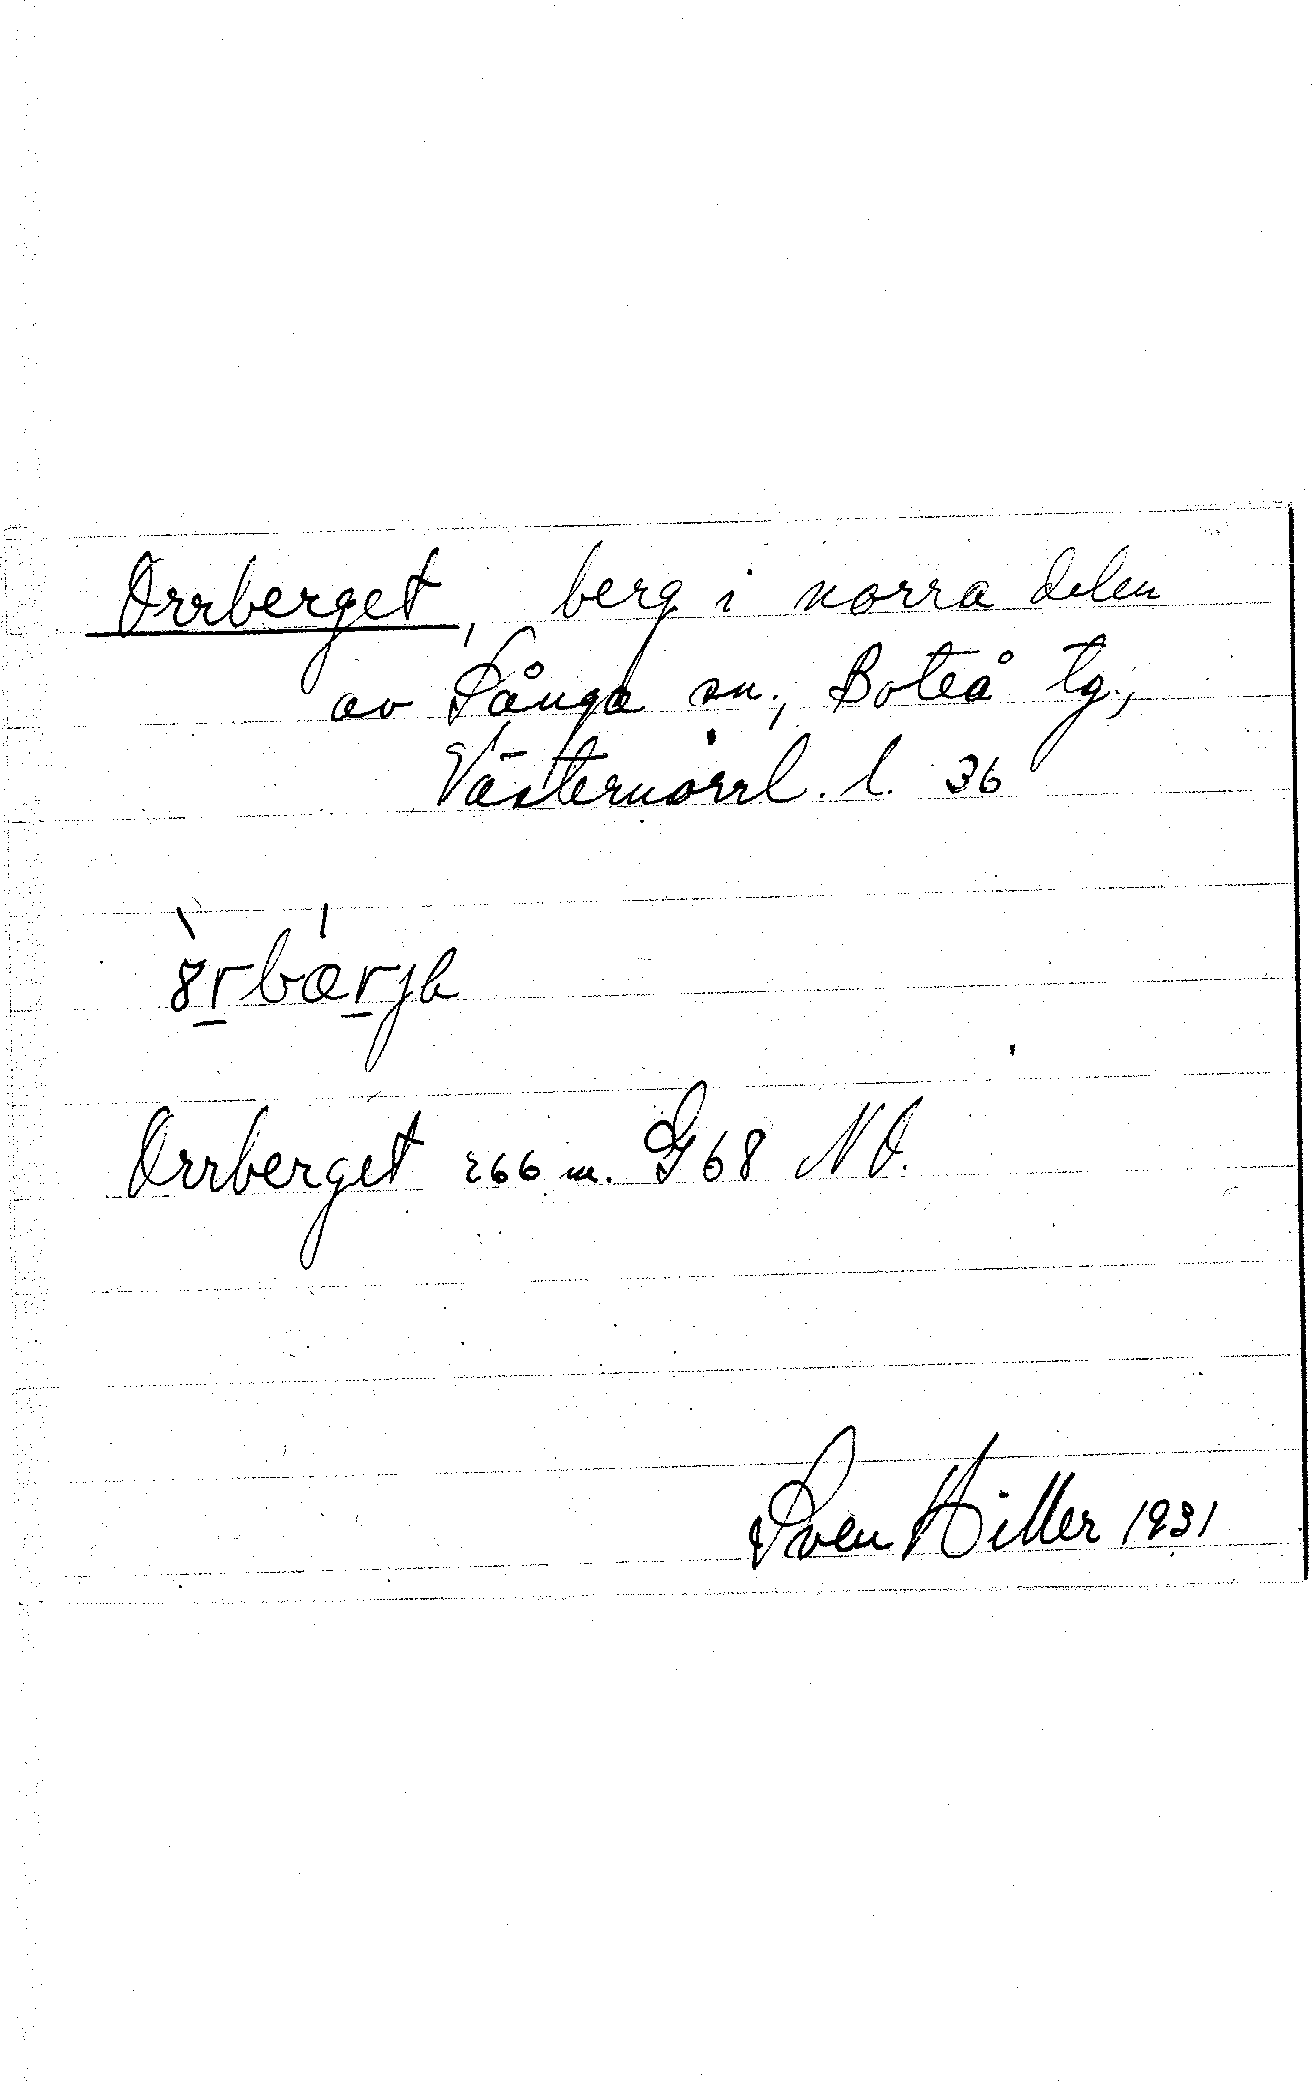 Orrberget, berg i norra delen
av Sånga sn., Boteå tg.,
Västernorrl. l. 36
Orrberget 266 m. G68 NO.
Sven Hiller 1931